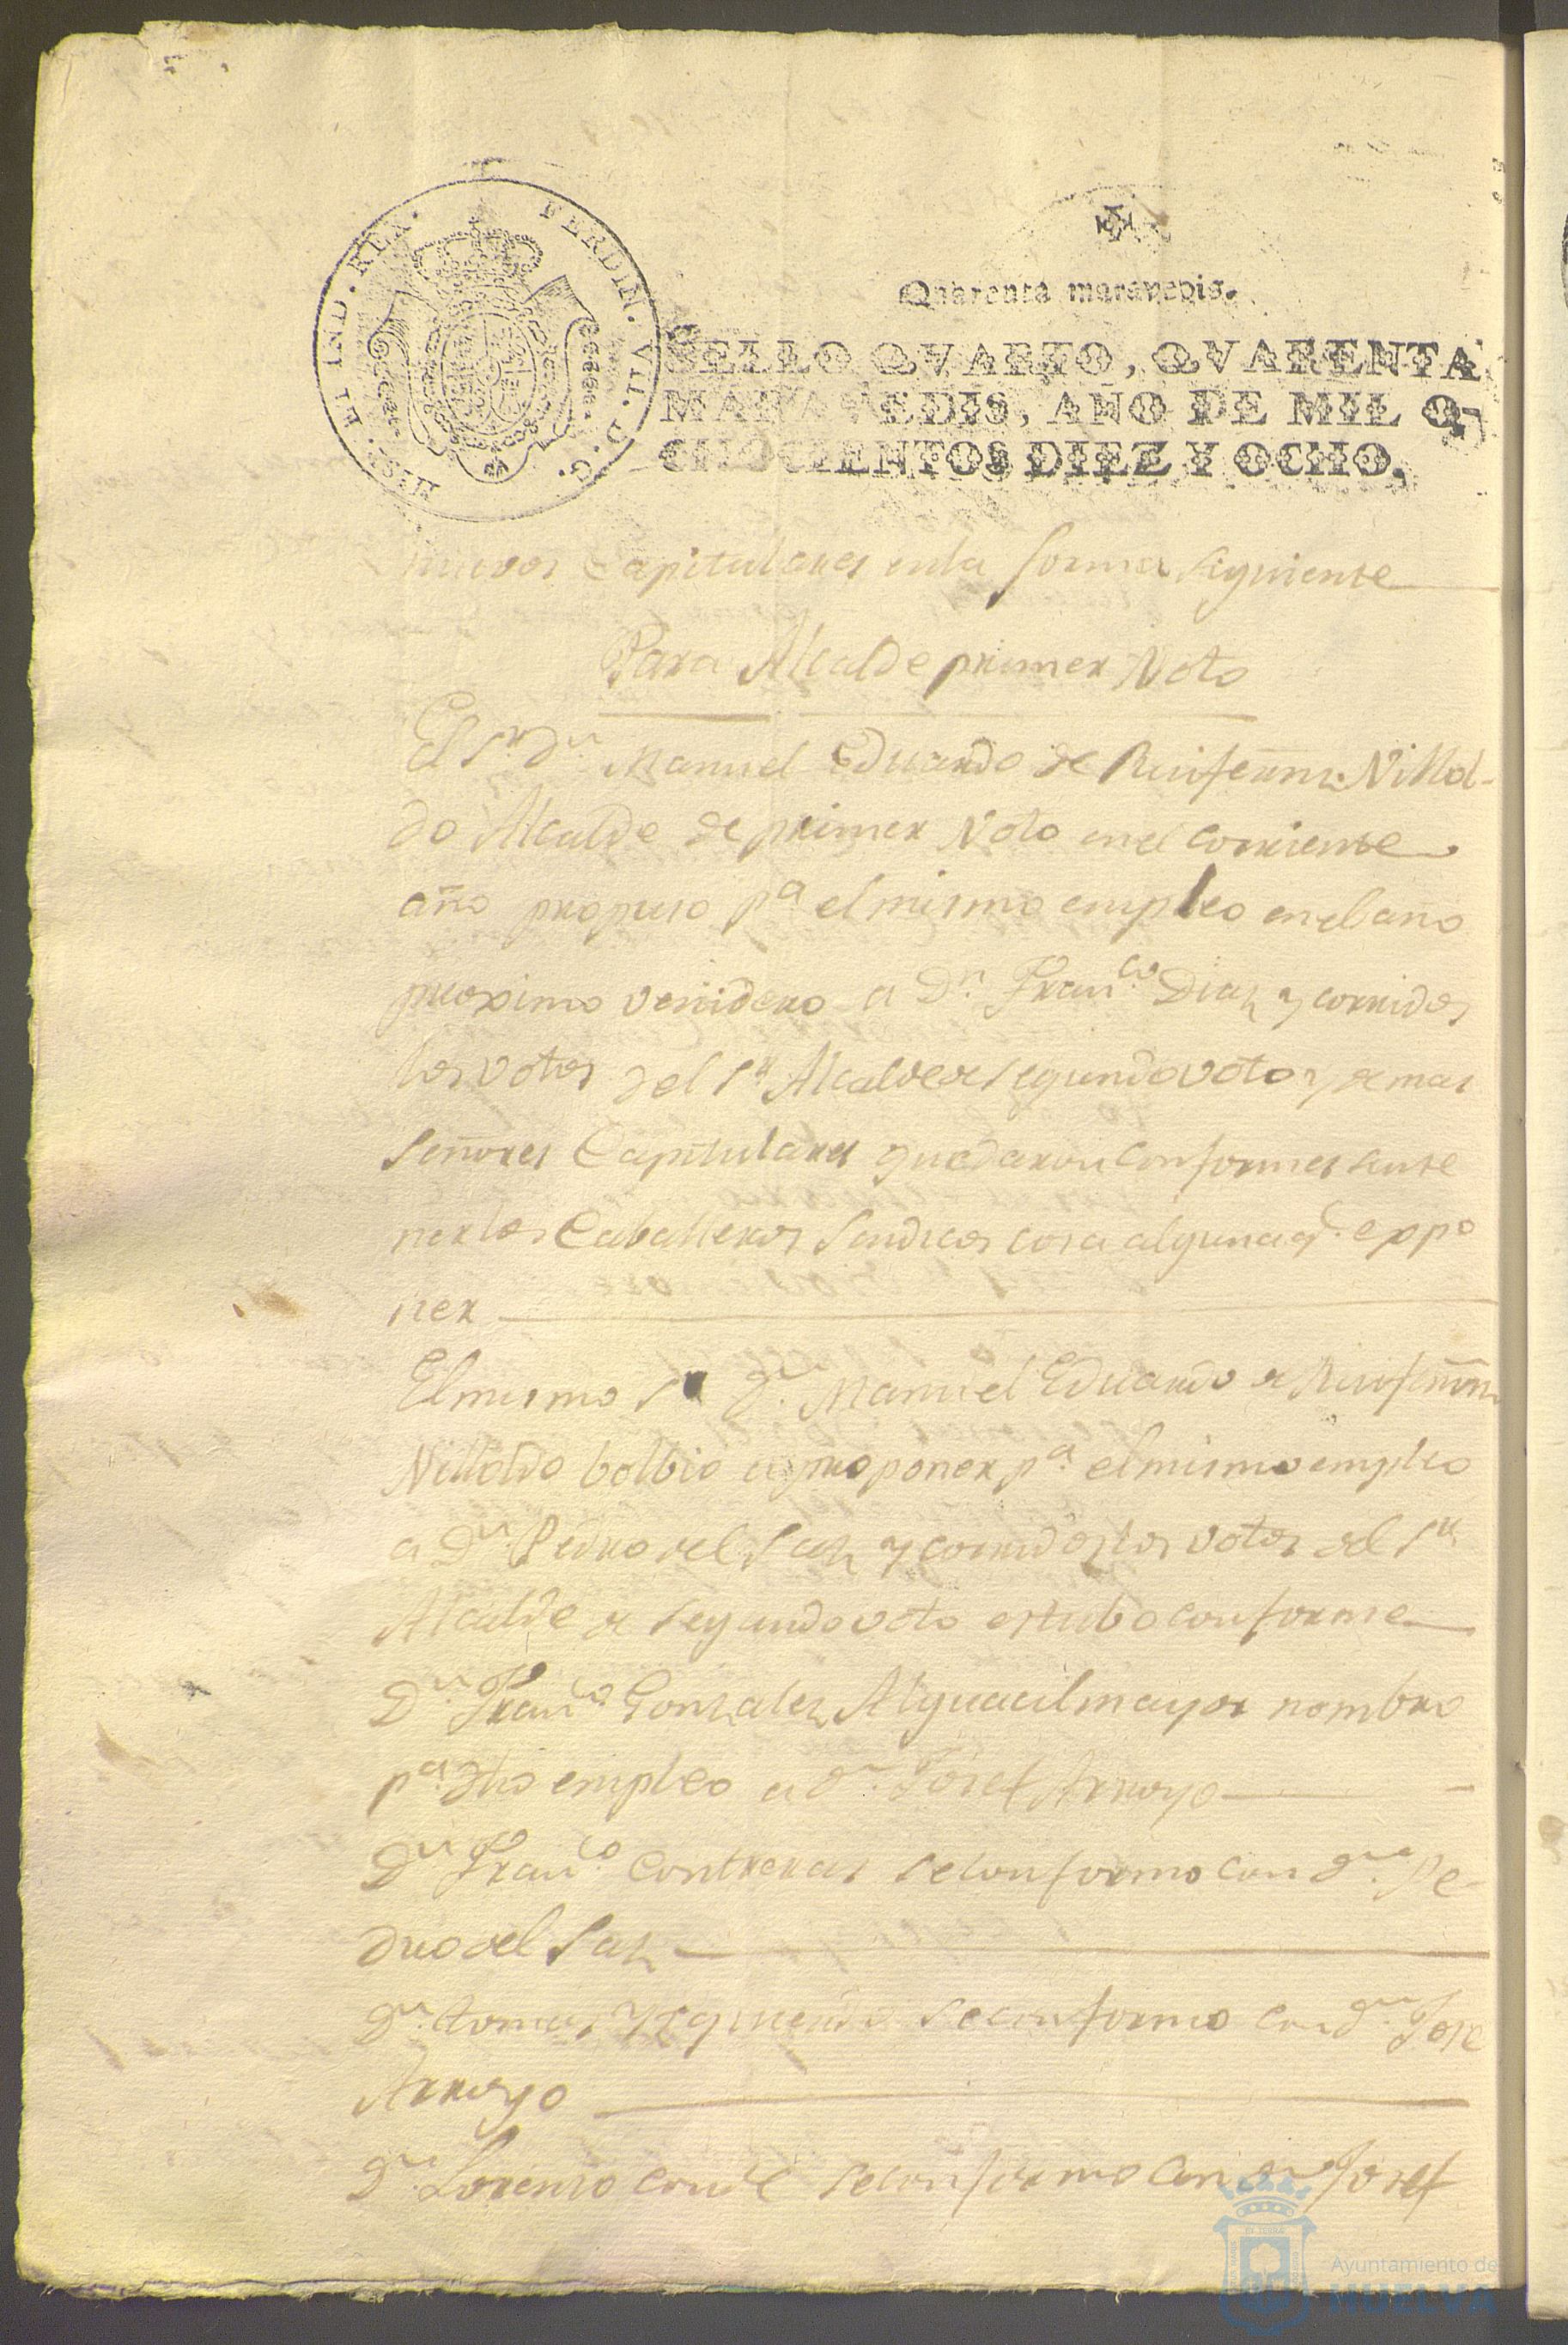 HISP. ET IND. REX. FERDIN. VII. D. G.
Quarenta maravedis.
SELLO QVARTO, QVARENTA
MARAVEDIS, AÑO DE MIL O-
CHOCIENTOS DIEZ Y OCHO.
nuevos Capitulares en la forma siguiente
Para Alcalde primer Voto
El Sr. Dn. Manuel Eduardo de
do Alcalde de primer Voto en el corriente
año propuso pa. el mismo empleo en el año
proximo venidero a Dn. Franco. Diaz y corridos
los votos del Sr. Alcalde de segundo voto y demas
Señores Capitulares quedaron conformes sin te
ner los Caballeros Sindicos cosa alguna q.e exppo
ner
El mismo Sr. Dn. Manuel Eduardo de
Villoldo bolbio a proponer pa. el mismo empleo
a Dn. Pedro del Saz y corridos los votos del Sr.
Alcalde de segundo voto estubo conforme
Dn. Franco. Gonzalez Alguacil mayor nombro
pa. dho empleo a Dn. Josef Arroyo
Dn. Franco. Contreras se conformo con Dn. Pe-
dro del Saz
Dn. tomas Yzquierdo se conformo con Dn. Jose
Arroyo
Dn. Lorenzo Conde se conformo con Dn. Josef
Ayuntamiento de
HUELVA